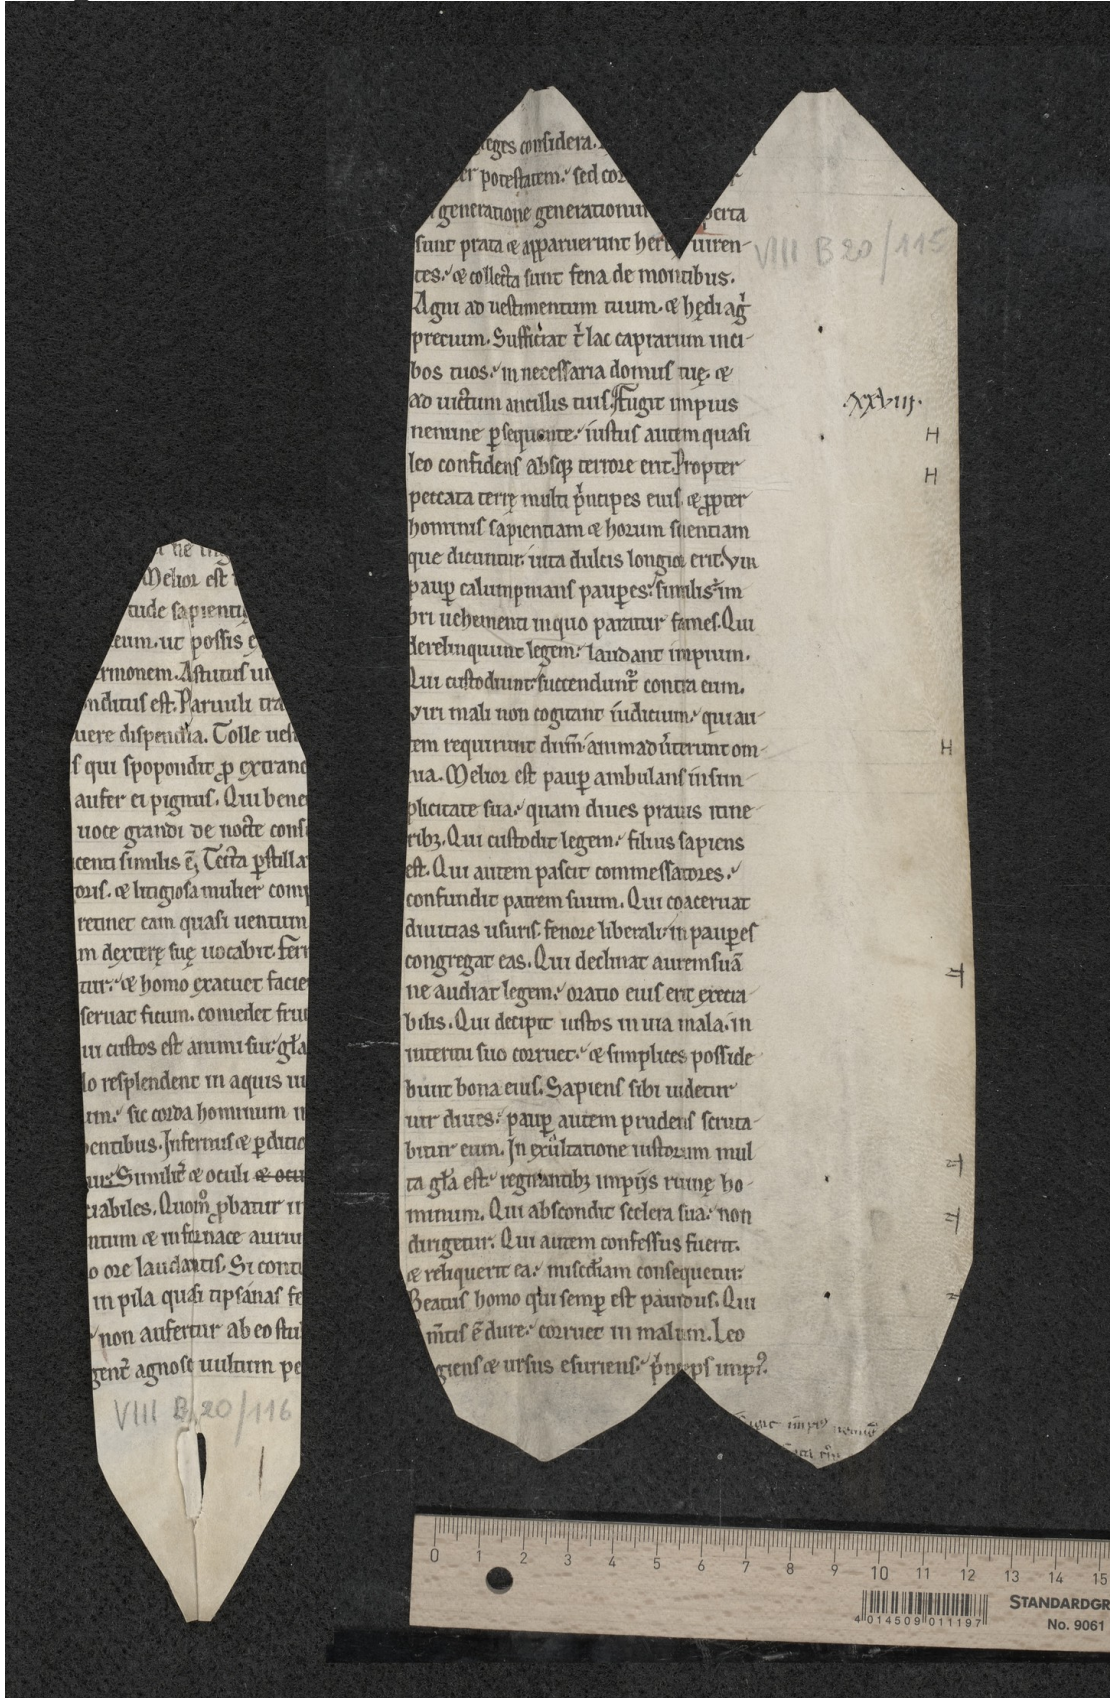 ne
Melior est
tude sapientię
eum. ut possis
rmonem. Astutus
nditus est. Paruuli tra
uere dispendia. Tolle
s qui spopondit ꝓ extrane
aufer ei pignus. Qui bene
uoce grandi de nocte cons
centi similis ē. Tecta ꝑstilla
oris. & litigiosa mulier com
retinet eam quasi uentum
m dexterę suę uocabit. ferr
tur: & homo exacuet facie
seruat ficum. comedet fru
ui custos est animi sui: gła
lo resplendent in aquis
um: sic corda hominum
entibus. Infernus & ꝑditio
Similit̄ & oculi & ocu
iabiles. Quom̊ ꝓbatur
ntum & in fornace auru
o ore laudantis. Si contu
in pila quasi tipsanas fe
non aufertur ab eo stul
gent̄ agnosc uultum pe
VIII B 20/116
greges considera.
er potestatem: sed cor
generatione generationum perta
sunt prata & apparuerunt herb uiren-
tes: & collecta sunt fena de montibus.
Agni ad uestimentum tuum. & hędi ag̓
precium. Sufficiat t̓ lac caprarum in ci-
bos tuos: in necessaria domus tuę. &
ad uictum ancillis tuis. Fugit impius
nemine ꝑsequente: iustus autem quasi
leo confidens absq; terrore erit. Propter
peccata terrę multi p̓ncipes eius. & ꝓpter
hominis sapientiam & horum scientiam
que dicuntur: uita ducis longior erit. Vir
pauꝑ calumpnians pauꝑes: similis im
bri uehementi in quo paratur fames. Qui
derelinquunt legem: laudant impium.
Qui custodiunt: succendunt̄ contra eum.
Viri mali non cogitant iudicium: qui au-
tem requirunt dn̄m: animaduerterunt om-
nia. Melior est pauꝑ ambulans in sim-
plicitate sua: quam diues prauis itine
rib;. Qui custodit legem: filius sapiens
est. Qui autem pascit commessatores:
confundit patrem suum. Qui coaceruat
diuitias usuris. fenore liberali: in pauꝑes
congregat eas. Qui declinat aurem suā
ne audiat legem: oratio eius erit execra-
bilis. Qui decipit iustos in uia mala. in
interitu suo corruet: & simplices posside
bunt bona eius. Sapiens sibi uidetur
uir diues: pauꝑ autem prudens scruta-
bitur eum. In exultatione iustorum mul
ta gła est: regnantib; impijs ruinę ho-
minum. Qui abscondit scelera sua: non
dirigetur. Qui autem confessus fuerit.
& reliquerit ea: misc̄diam consequetur:
Beatus homo qui semꝑ est pauidus. Qui
m̄tis ē dure: corruet in malum. Leo
giens & ursus esuriens: p̓nceps imp̓
VIII B 20/115
.XXVIII.
H
H
H
0 1 2 3 4 5 6 7 8 9 10 11 12 13 14 15
4 014509 011197
STANDARDGR
No. 9061